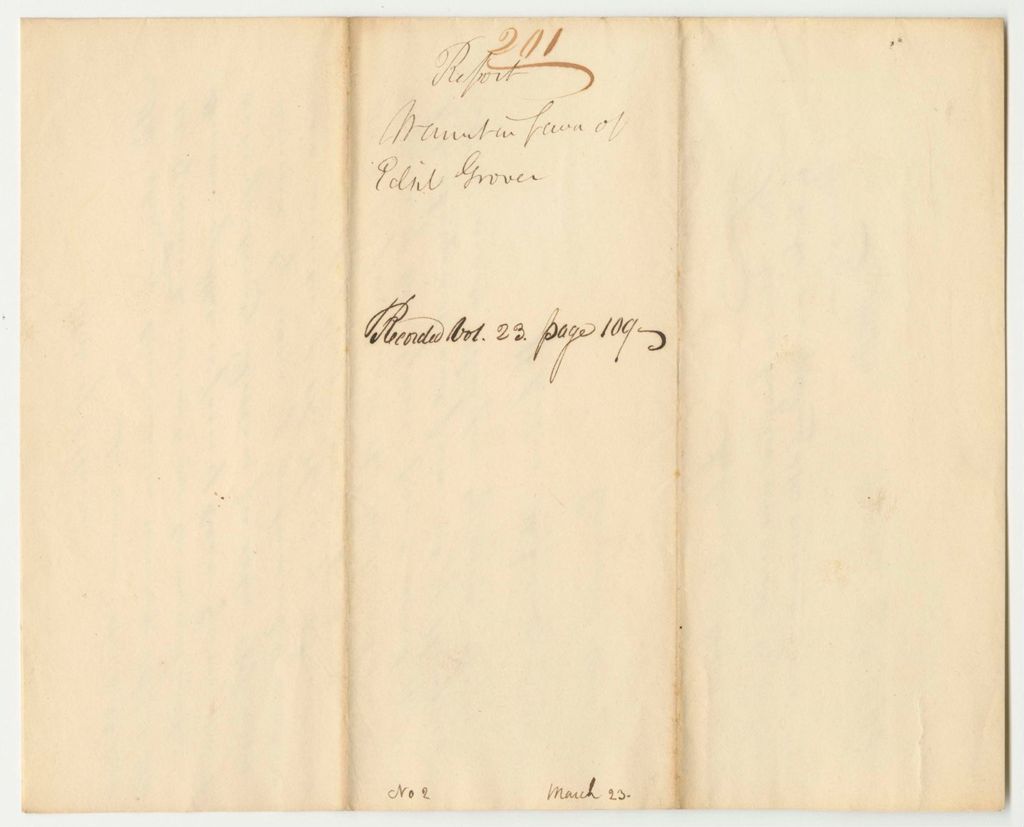 201
Report
Warrant in favor of
Edsil Grover
Recorded Vol. 23. page 109
No 2 March 23.